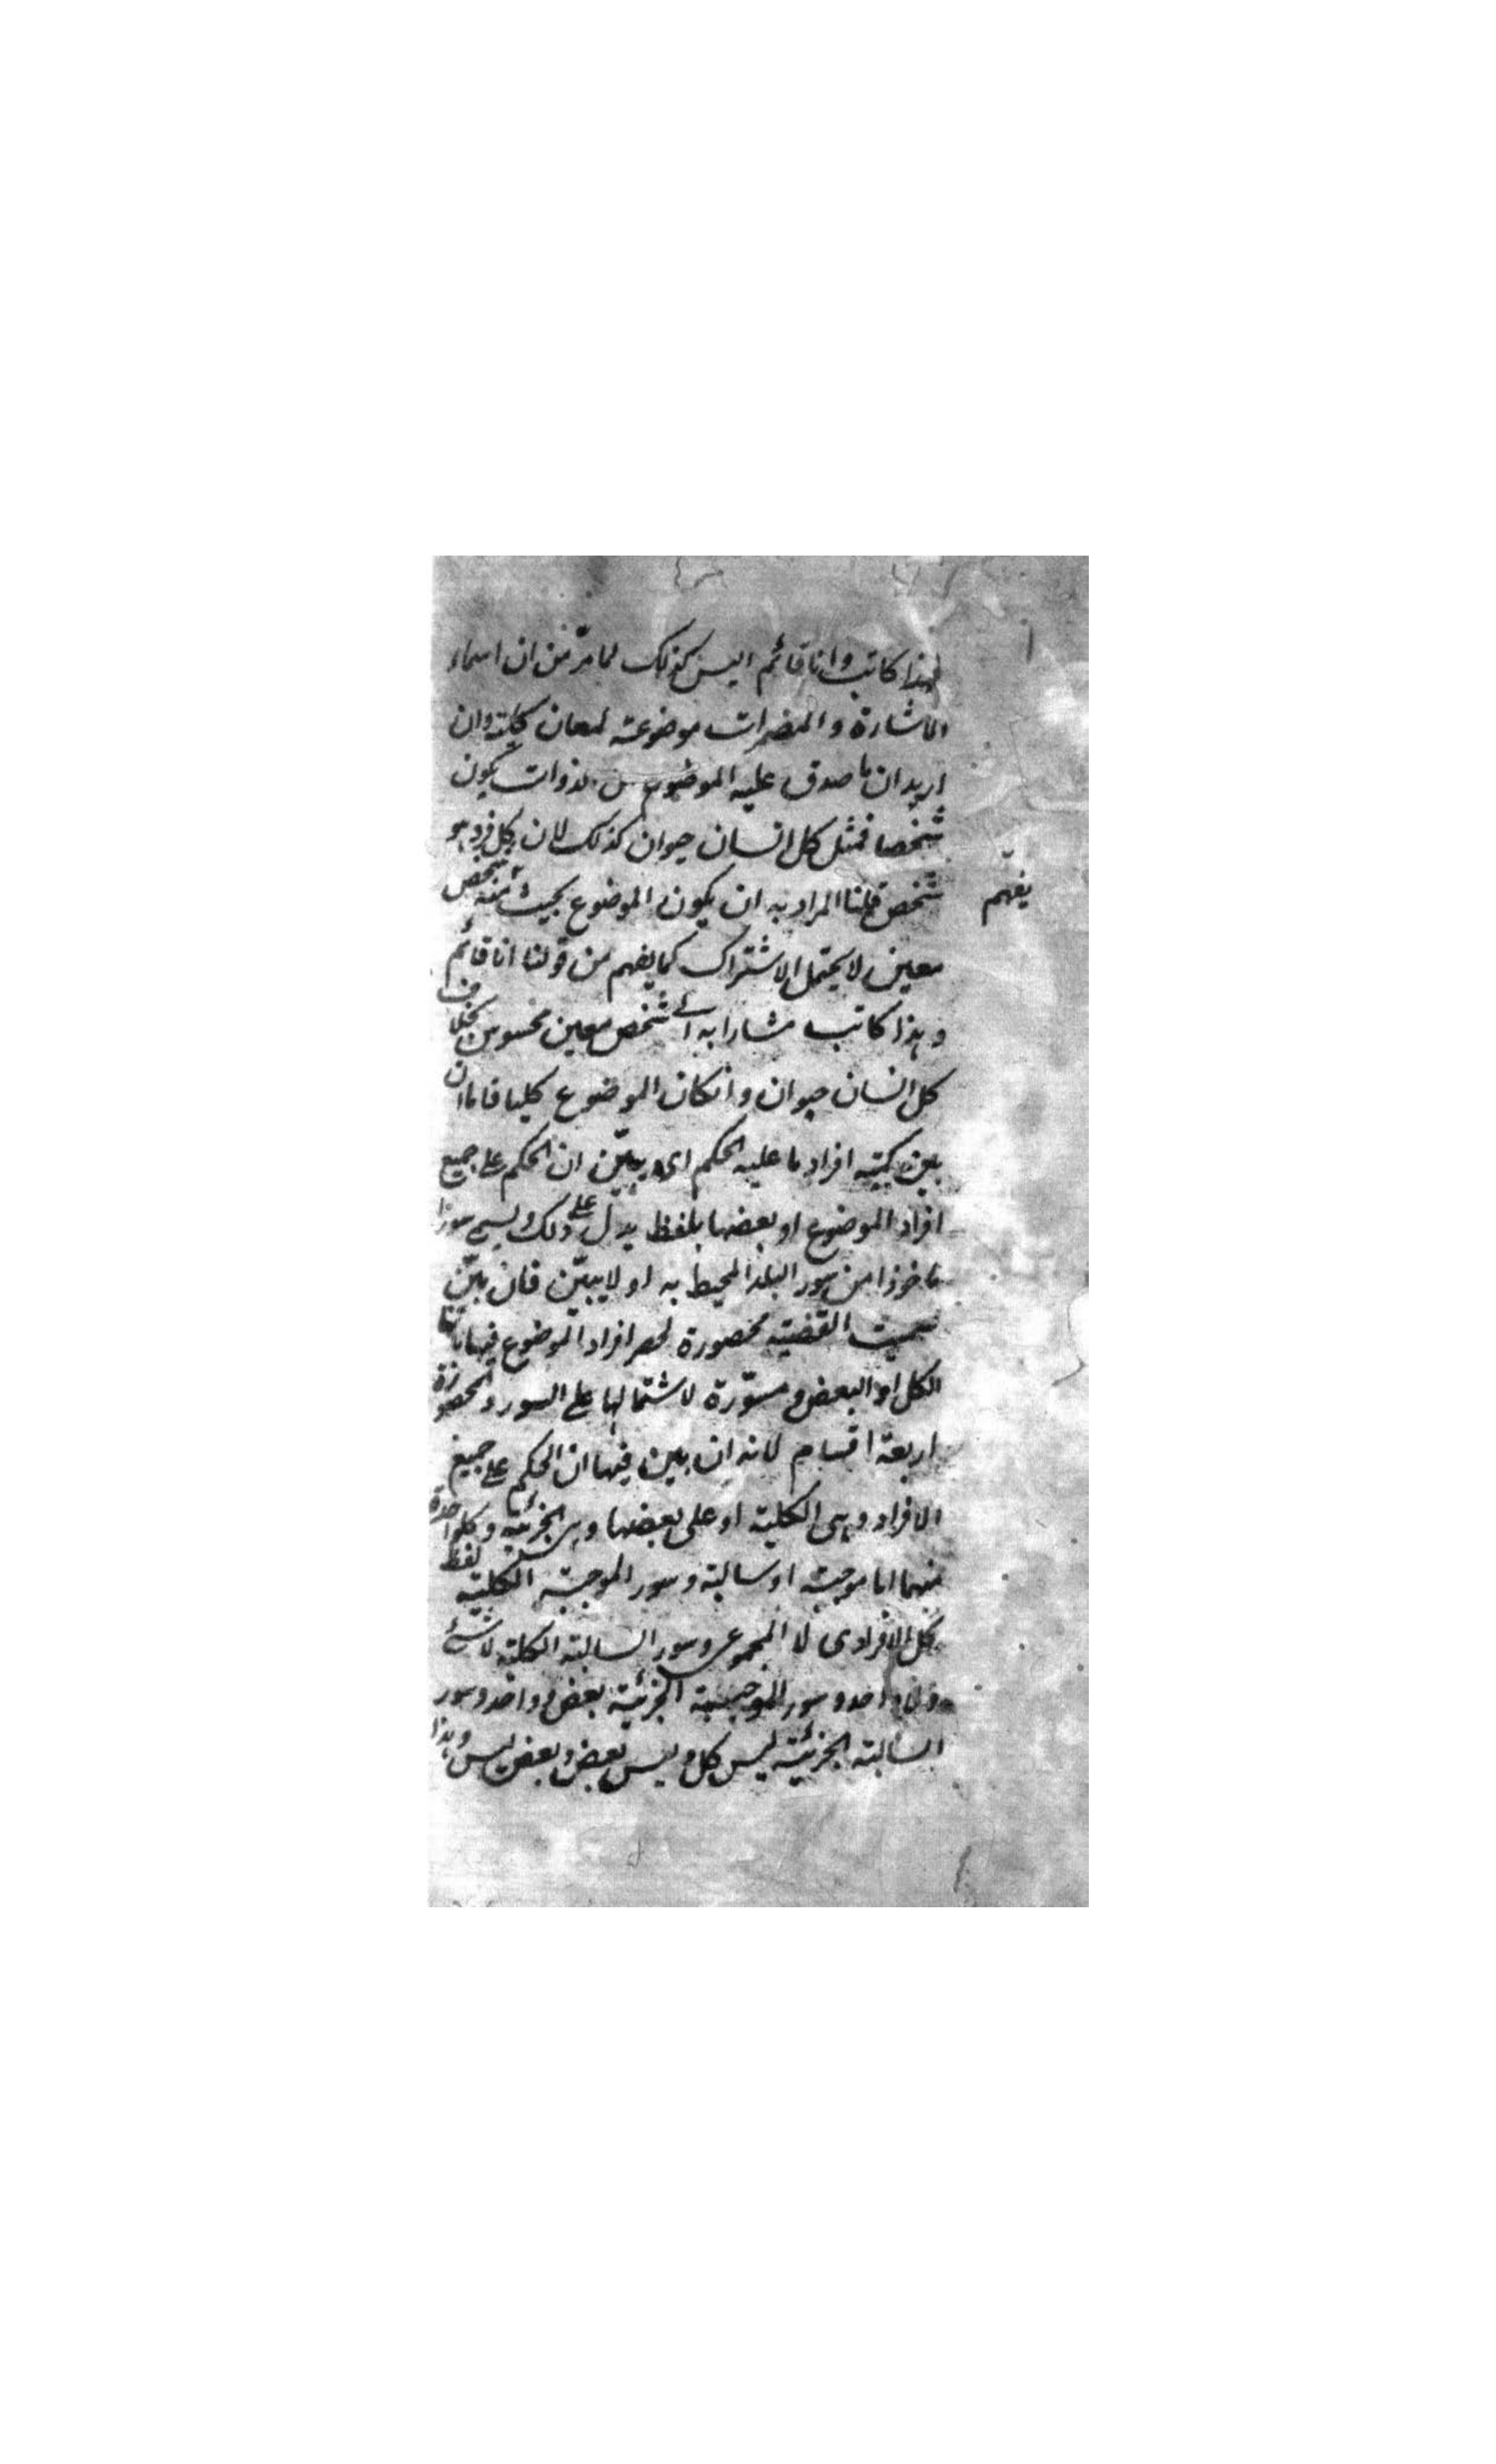 فهذا كاتب وانا قائم ليس كذلك لما مرّ من ان اسماء
الاشارة والمضمرات موضوعة لمعان كلية وان
اريد ان ما صدق عليه الموضوع من الذوات يكون
شخصا فمثل كل انسان حيوان كذلك لان كل فرد هو
شخص قلنا المراد به ان يكون الموضوع بحيث منه شخص
يفهم
معين لا يحتمل الاشتراك كما يفهم من قولنا انا قائم
وهذا كاتب مشارا به الى شخص معين محسوس بخلاف
كل انسان حيوان وانكان الموضوع كليا فاما ان
بين كمية افراد ما عليه الحكم اى يبيّن ان الحكم على جميع
افراد الموضوع او بعضها بلفظ يدل على ذلك ويسمى سورا
ماخوذا من سور البلد المحيط به او لا يبيّن فان بيّن
سميت القضية محصورة لحصر افراد الموضوع فيها
الكل او البعض ومسوّرة لاشتمالها على السور والمحصورة
اربعة اقسام لانه ان بين فيها ان الحكم على جميع
الافراد وهى الكلية او على بعضها وهى الجزئية وكل واحدة
منهما اما موجبة او سالبة وسور الموجبة الكلية لفظ
كل الافرادى لا المجموعى وسور السالبة الكلية لا شئ
ولا واحد وسور الموجبة الجزئية بعض وواحد وسور
السالبة الجزئية ليس كل وليس بعض وبعض ليس وهذا